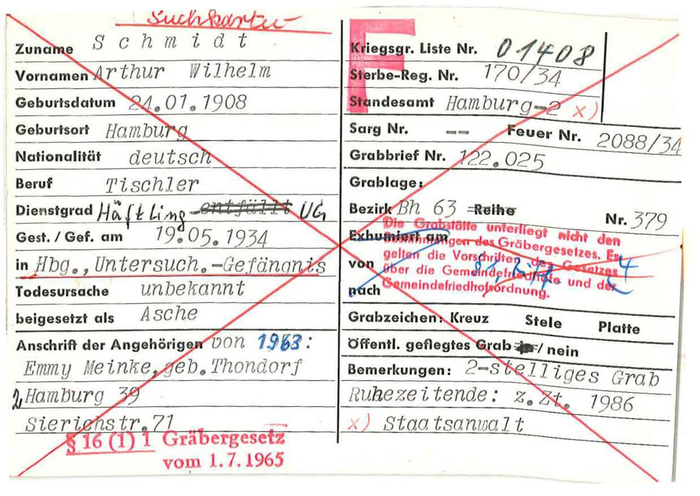 Suchkartei
Zuname Schmidt
Vornamen Arthur Wilhelm
Geburtsdatum 24.01.1908
Geburtsort Hamburg
Nationalität deutsch
Beruf Tischler
Dienstgrad Häftling entfällt UG
Gest. / Gef. am 19.05.1934
in Hbg., Untersuch.-Gefängnis
Todesursache unbekannt
beigesetzt als Asche
Anschrift der Angehörigen von 1963:
Emmy Meinke, geb. Thondorf
2 Hamburg 39
Sierichstr. 71
§ 16 (1) 1 Gräbergesetz
vom 1.7.1965
F
Kriegsgr. Liste Nr. 01408
Sterbe-Reg. Nr. 170/34
Standesamt Hamburg-2 x)
Sarg Nr. -- Feuer Nr. 2088/34
Grabbrief Nr. 122.025
Grablage:
Bezirk Bh 63 Reihe Nr. 379
Exhumiert am
von
nach
Die Grabstätte unterliegt nicht den
Bestimmungen des Gräbergesetzes. Es
gelten die Vorschriften des Gesetzes
über die Gemeindefriedhöfe und der
Gemeindefriedhofsordnung.
Grabzeichen: Kreuz Stele Platte
Öffentl. gepflegtes Grab ja / nein
Bemerkungen: 2-stelliges Grab
Ruhezeitende: z.Zt. 1986
x) Staatsanwalt